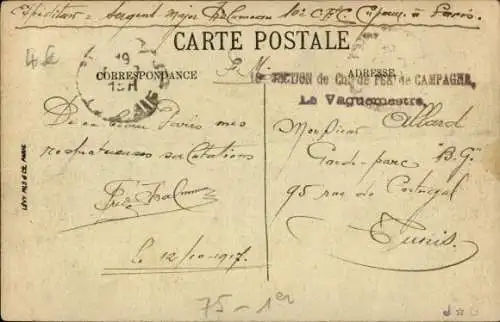 Expéditeur = Sergent Major
CARTE POSTALE
CORRESPONDANCE
ADRESSE
SECTION de Ch. de FER de CAMPAGNE
Le Vaguemestre,
De ce beau Paris mes
respectueuses salutations
Le 12/10-1917
Monsieur Allard
Garde-parc "B.G"
95 rue de Portugal
Tunis
LEVY FILS & CIE PARIS
75-1er